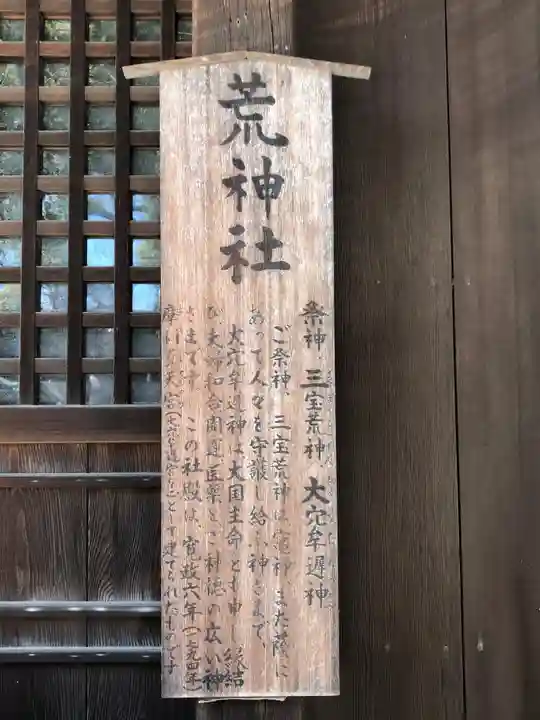 荒神社
祭神 三宝荒神 大穴牟遅神
ご祭神、三宝荒神は、竈神、また蔭に
あって人々を守護し給う神さまで、
大穴牟遅神は大国主命とも申し縁結
び、夫婦和合開運医薬と、神徳の広い神
さまです。この社殿は、寛政六年(一七九四年)
天宮(大穴牟遅命を として建てられたものです